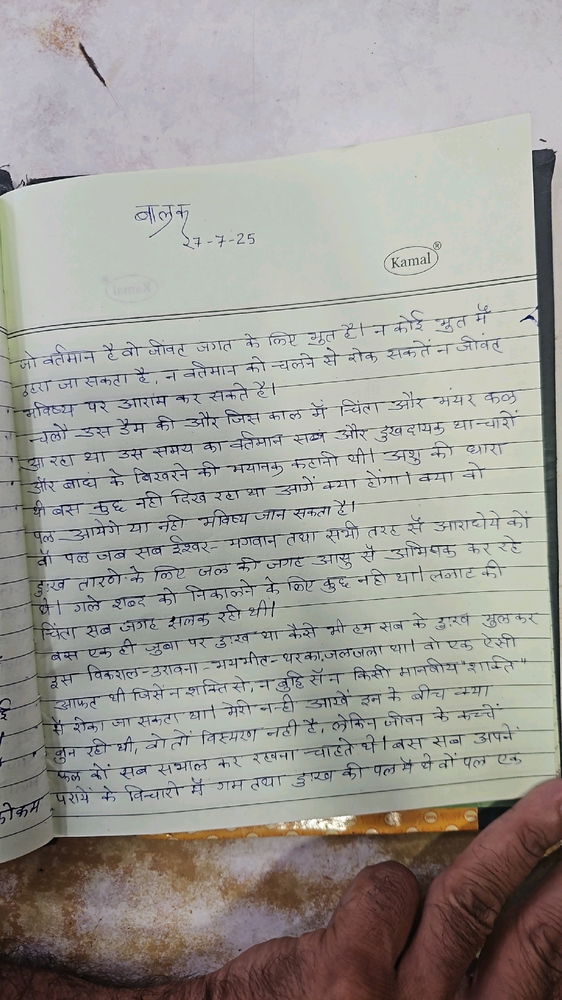 बालक
27-7-25
Kamal®
जो वर्तमान है वो जीवंत जगत के लिए भूत है। न कोई भूत में
ठहरा जा सकता है, न वर्तमान को चलने से रोक सकतें न जीवंत
भविष्य पर आराम कर सकते है।
चलों उस डैम की और जिस काल में चिंता और भंयर कल
आ रहा था उस समय का वर्तमान सब्र और दुखदायक था चारों
और बाधं के बिखरने की भयानक कहानी थी। अशु की धारा
थी बस कुछ नही दिख रहा था आगें क्या होंगा। क्या वो
पल आयेगे या नही भविष्य जान सकता है।
वों पल जब सब ईश्वर-भगवान तथा सभी तरह सें
दुःख तारणे के लिए जल की जगह आसु सें अभिषेक कर रहे
थे। गले शब्द को निकालने के लिए कुछ नही था। ललाट की
चिंता सब जगह झलक रही थी।
बस एक ही जुबा पर दुःख था कैसे भी हम सब के दुःख भुलकर
इस विकराल-डरावना-भयभीत- जलजला था। वो एक ऐसी
आफत थी जिसें न शक्ति से, न बुद्दि सें न किसी मानवीय "शक्ति"
से रोका जा सकता था। मेरी नन्ही आखें इन के बीच क्या
बुन रही थी, वो तों विस्मरण नही है, लेकिन जीवन के कच्चें
फल कों सब सभाल कर रखना चाहते थे। बस सब अपनें
परायें के विचारो में गम तथा दुःख की पल में थे वों पल एक